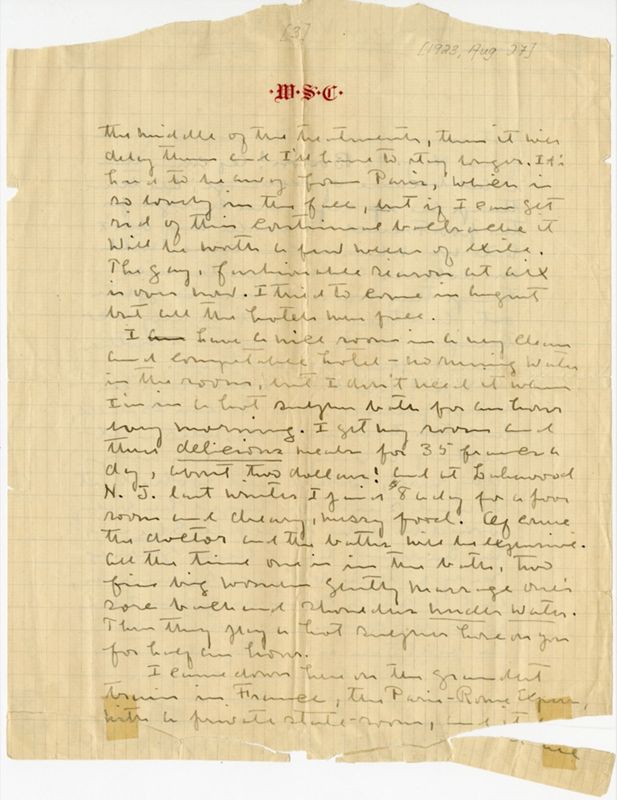 [3]
[1923, Aug 27]
·W·S·C·
the middle of the treatments, then it will
delay them and I'll have to stay longer. It's
hard to be away from Paris, which is
so lovely in the fall, but if I can get
rid of this continual backache it
will be worth a few weeks of exile.
The gay, fashionable season at Aix
is over now. I tried to come in August
but all the hotels were full.
I am have a nice room in a very clean
and comfortable hotel - no running water
in the room, but I don't need it when
I'm in a hot sulphur bath for an hour
every morning. I get my room and
three delicious meals for 35 francs a
day, about two dollars! and at Lakewood
N. J. last winter I paid $8 a day for a poor
room and dreary, messy food. Of course
the doctor and the baths will be expensive.
All the time one is in the bath, two
fine big women gently massage one's
sore back and shoulder under water.
Then they play a hot sulphur hose on you
for half an hour.
I came down here on the grandest
train in France, the Paris-Rome Express,
with a private state-room, and it